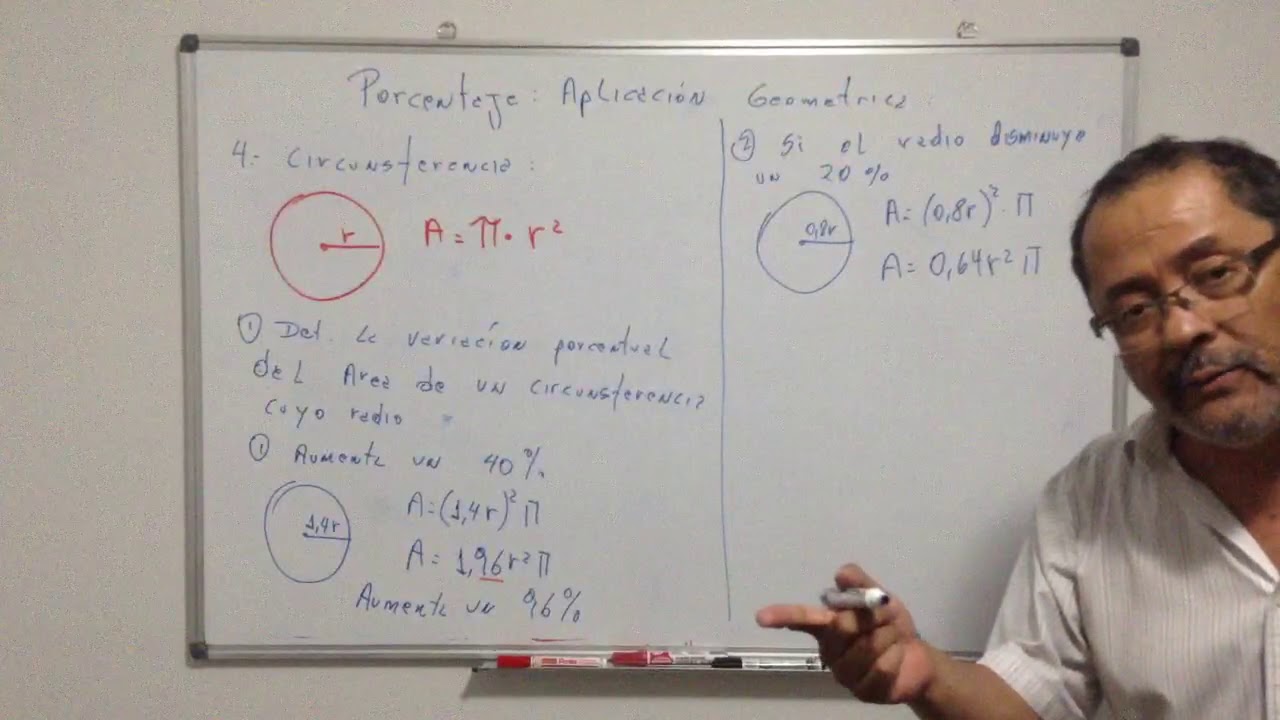 Porcentaje: Aplicación Geometrica:
4.- Circunsferencia:
r
A = π · r²
① Det. la variación porcentual
del Area de un circunsferencia
cuyo radio
① Aumenta un 40%.
1,4r
A = (1,4r)² π
A = 1,96r² π
Aumenta un 96%
② Si el radio disminuye
un 20%
0,8r
A = (0,8r)² · π
A = 0,64r² π